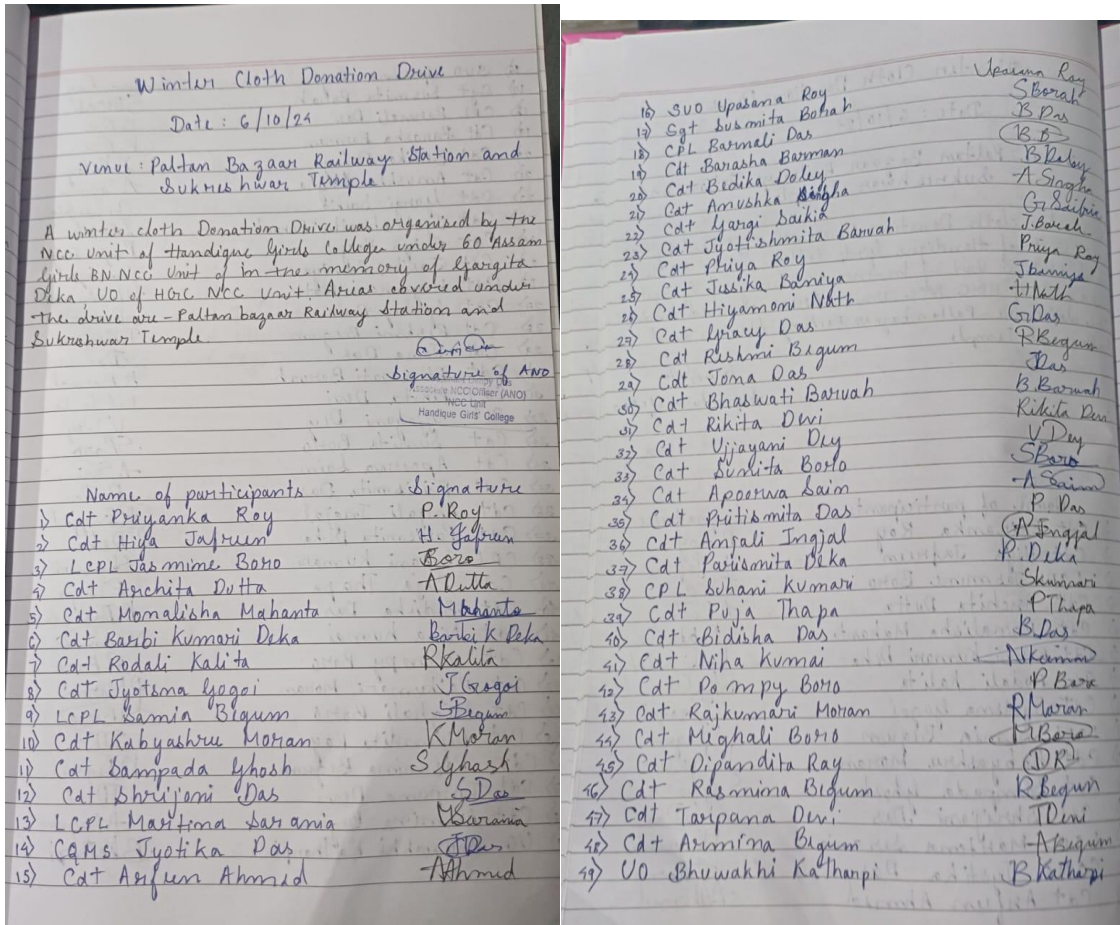 Winter Cloth Donation Drive
Date : 6/10/24
Venue : Paltan Bazaar Railway Station and
Sukreshwar Temple
A winter cloth Donation Drive was organised by the
NCC unit of Handique Girls College under 60 Assam
Girls BN NCC Unit of in the memory of Gargita
Deka UO of HGC NCC Unit. Arias covered under
the drive are - Paltan bazaar Railway Station and
Sukrshwar Temple.
Signature of ANO
Associate NCC Officer (ANO)
NCC Unit
Handique Girls' College
Name of participants Signature
1) Cdt Priyanka Roy P. Roy
2) Cdt Hiya Jafrun H. Jafrun
3) LCPL Jasmine Boro Boro
4) Cdt Archita Dutta A Dutta
5) Cdt Momalisha Mahanta Mahanta
6) Cdt Barbi Kumari Deka Barbi K Deka
7) Cdt Rodali Kalita RKalita
8) Cdt Jyotsna Gogoi J Gogoi
9) LCPL Samia Begum SBegum
10) Cdt Kabyashru Moran K Moran
11) Cdt Sampada Ghosh S Ghosh
12) Cdt Shrijoni Das SDas
13) LCPL Maritima Sarania MSarania
14) CQMS Jyotika Das JDas
15) Cdt Arfun Ahmed AAhmed
16) SUO Upasana Roy Upasana Roy
17) Sgt Susmita Borah SBorah
18) CPL Barnali Das B Das
19) Cdt Barasha Barman B.B
20) Cdt Bedika Doley B Doley
21) Cdt Anushka Singha A. Singha
22) Cdt Gargi Saikia G. Saikia
23) Cdt Jyottishmita Baruah J. Baruah
24) Cdt Priya Roy Priya Roy
25) Cdt Jessika Baniya Jbaniya
26) Cdt Hiyamoni Nath H Nath
27) Cdt Gracy Das G Das
28) Cdt Reshmi Begum R Begum
29) Cdt Joma Das JDas
30) Cdt Bhaswati Baruah B. Baruah
31) Cdt Rikita Devi Rikita Devi
32) Cdt Vijayani Dey V Dey
33) Cdt Sunita Boro S Boro
34) Cdt Apoorwa Sain A Sain
35) Cdt Pritismita Das P Das
36) Cdt Anjali Ingjal A Ingjal
37) Cdt Parismita Deka P. Deka
38) CPL Suhani Kumari Skumari
39) Cdt Puja Thapa P Thapa
40) Cdt Bidisha Das B. Das
41) Cdt Niha Kumai NKumai
42) Cdt Pompy Boro P. Boro
43) Cdt Rajkumari Moran R Moran
44) Cdt Mighali Boro MBoro
45) Cdt Dipandita Ray DR
46) Cdt Rasmina Begum R Begum
47) Cdt Tarpana Devi TDevi
48) Cdt Armina Begum ABegum
49) UO Bhuwakhi Katharpi B Katharpi